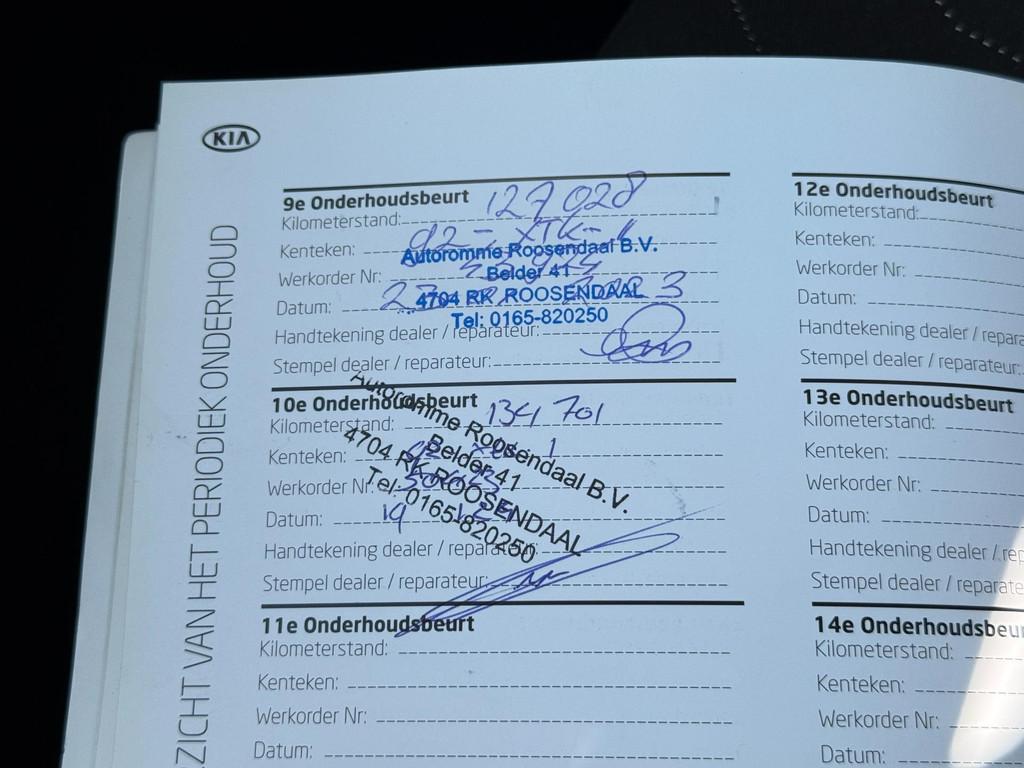 KIA
OVERZICHT VAN HET PERIODIEK ONDERHOUD
9e Onderhoudsbeurt
Kilometerstand: 127 028
Kenteken:
Werkorder Nr:
Datum:
Handtekening dealer / reparateur:
Stempel dealer / reparateur:
Autoromme Roosendaal B.V.
Belder 41
4704 RK ROOSENDAAL
Tel: 0165-820250
10e Onderhoudsbeurt
Kilometerstand: 134 701
Kenteken:
Werkorder Nr:
Datum: 19
Handtekening dealer / reparateur:
Stempel dealer / reparateur:
Autoromme Roosendaal B.V.
Belder 41
4704 RK ROOSENDAAL
Tel: 0165-820250
11e Onderhoudsbeurt
Kilometerstand:
Kenteken:
Werkorder Nr:
Datum:
12e Onderhoudsbeurt
Kilometerstand:
Kenteken:
Werkorder Nr:
Datum:
Handtekening dealer / repara
Stempel dealer / reparateur:
13e Onderhoudsbeurt
Kilometerstand:
Kenteken:
Werkorder Nr:
Datum:
Handtekening dealer / rep
Stempel dealer / reparate
14e Onderhoudsbeu
Kilometerstand:
Kenteken:
Werkorder Nr:
Datum: